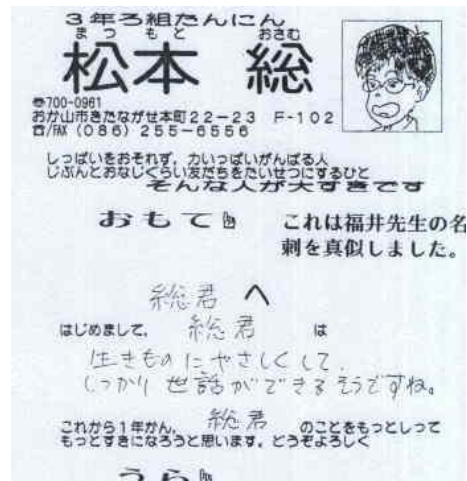 3年ろ組たんにん
まつ もと おさむ
松本 総
〠700-0961
おか山市きたながせ本町22-23 F-102
☎/FAX (086) 255-6556
しっぱいをおそれず，力いっぱいがんばる人
じぶんとおなじくらい友だちをたいせつにするひと
そんな人が大すきです
おもて
これは福井先生の名
刺を真似しました。
総君 へ
はじめまして、 総君 は
生きものにやさしくして，
しっかり世話ができるそうですね。
これから1年かん， 総君 のことをもっとしって
もっとすきになろうと思います。どうぞよろしく
うら